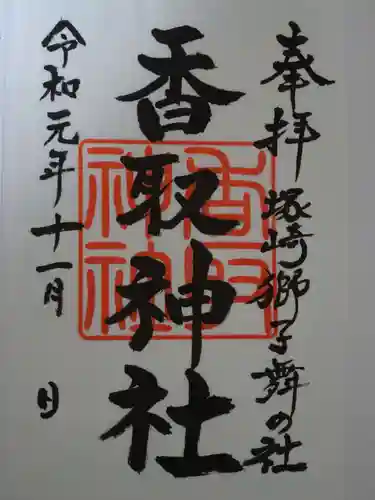 奉拝 塚崎獅子舞の社
香取神社
令和元年十一月 日
香取神社